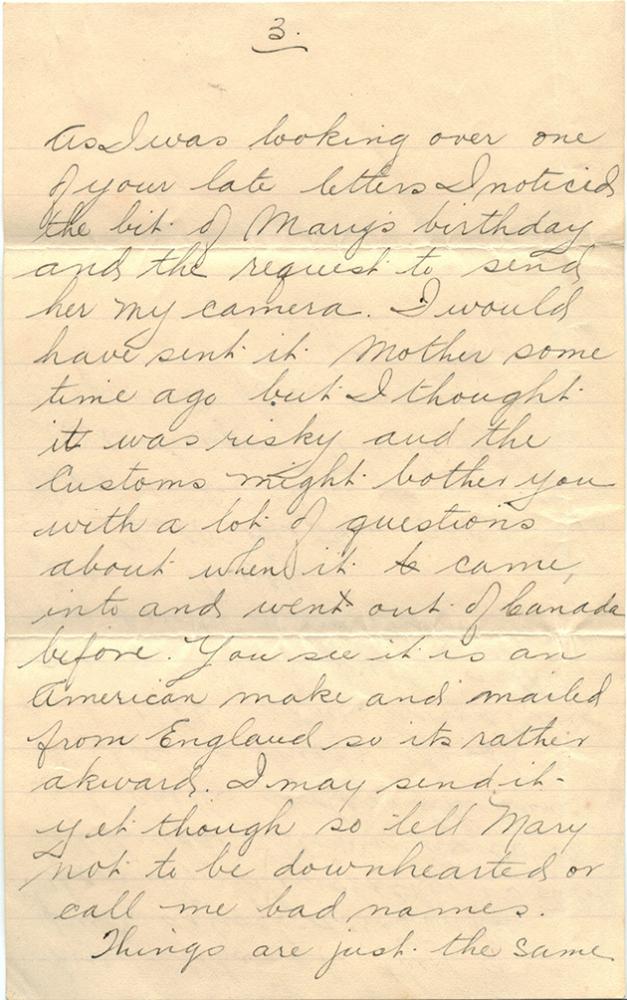 3.
As I was looking over one
of your late letters I noticed
the bit of Mary's birthday
and the request to send
her my camera. I would
have sent it Mother some
time ago but I thought
it was risky and the
Customs might bother you
with a lot of questions
about when it came,
into and went out of Canada
before. You see it is an
American make and mailed
from England so its rather
akward. I may send it-
yet though so tell Mary
not to be downhearted or
call me bad names.
Things are just the same